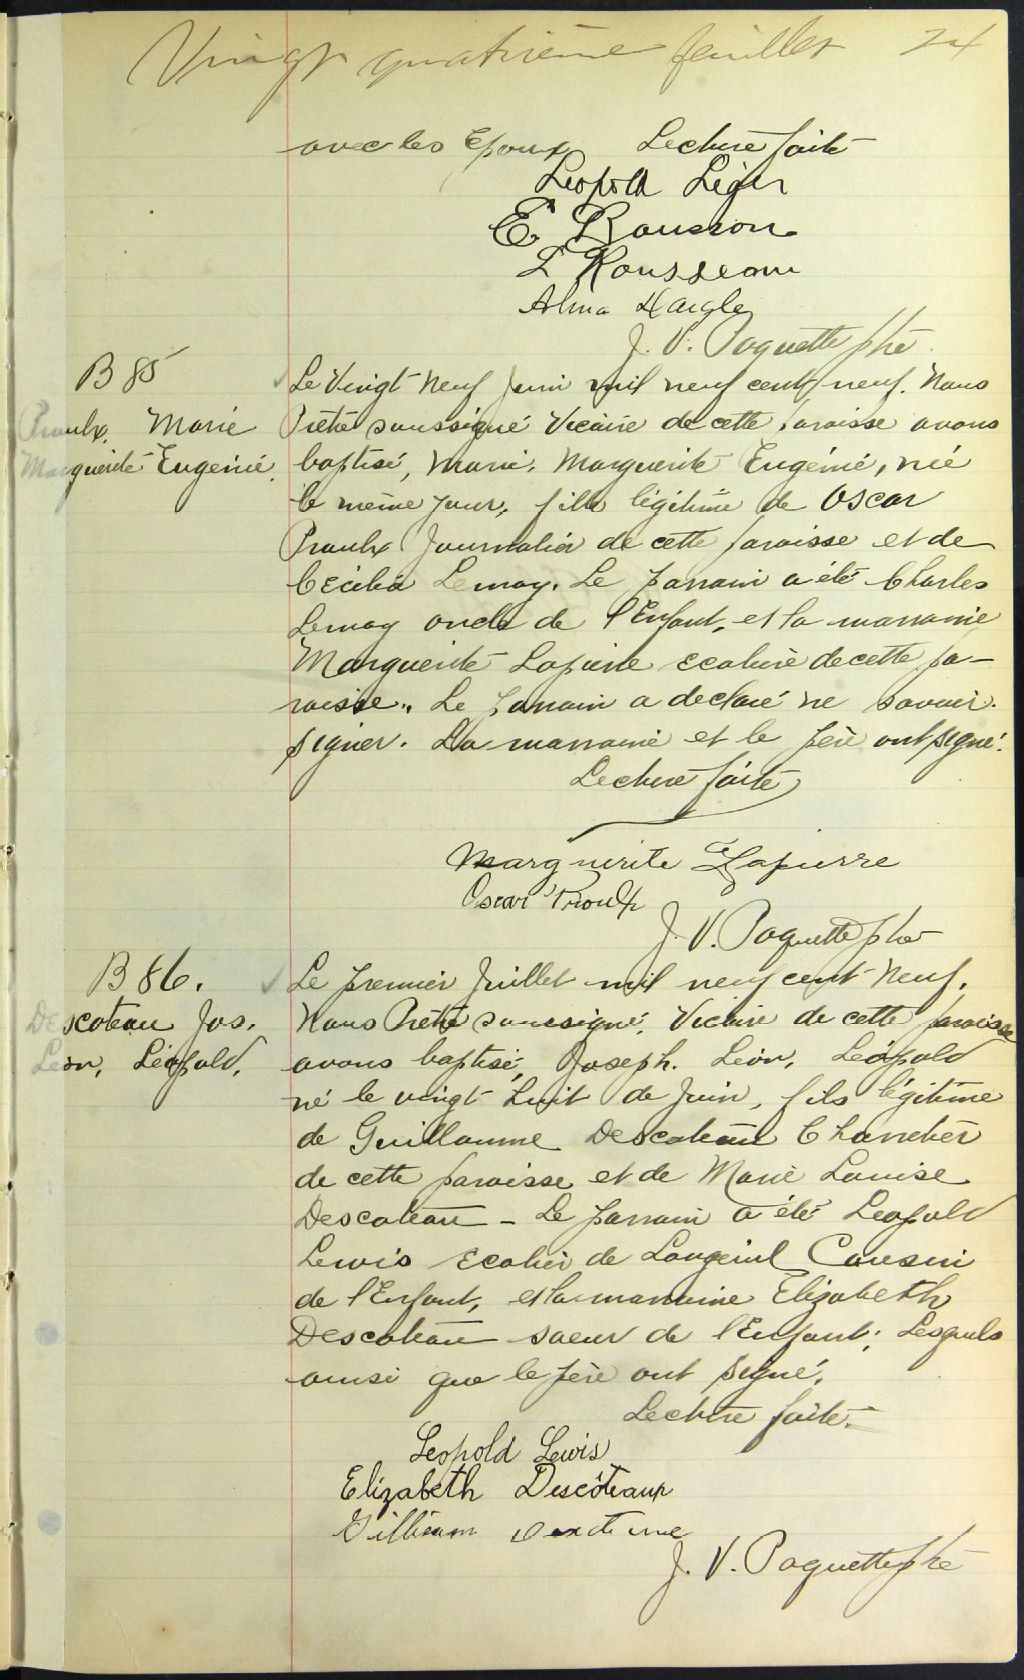 Vingt quatrième feuillet 24
avec les Epoux Lecture faite
Leopold Léger
E. Rousson
L Rousseau
Alma Daigle
J. V. Paquette ptre
B 85
Proulx, Marie
Marguerite Eugénie.
Le Vingt Neuf Juin mil neuf cent neuf. Nous
Prêtre soussigné Vicaire de cette paroisse avons
baptisé, Marie, Marguerite Eugénie, née
le même jour, fille légitime de Oscar
Proulx Journalier de cette paroisse et de
Cécilia Lemay. Le parrain a été Charles
Lemay oncle de l'Enfant, et la marraine
Marguerite Lapierre Ecolière de cette pa-
roisse. Le parrain a déclaré ne savoir
signer. La marraine et le père ont signé.
Lecture faite
Marguerite Lapierre
Oscar Proulx
J. V. Paquette ptre
B 86.
Descoteau Jos.
Léon, Léopold,
Le premier Juillet mil neuf cent Neuf.
Nous Prêtre soussigné, Vicaire de cette paroisse
avons baptisé, Joseph. Léon, Léopold
né le vingt huit de Juin, fils légitime
de Guillaume Descoteau Charretier
de cette paroisse et de Marie Louise
Descoteau - Le parrain a été Leopold
Lewis Ecolier de Longueuil Cousin
de l'Enfant, et la marraine Elizabeth
Descoteau soeur de l'Enfant; Lesquels
ainsi que le père ont signé.
Lecture faite.
Leopold Lewis
Elizabeth Descôteaux
William
J. V. Paquette ptre